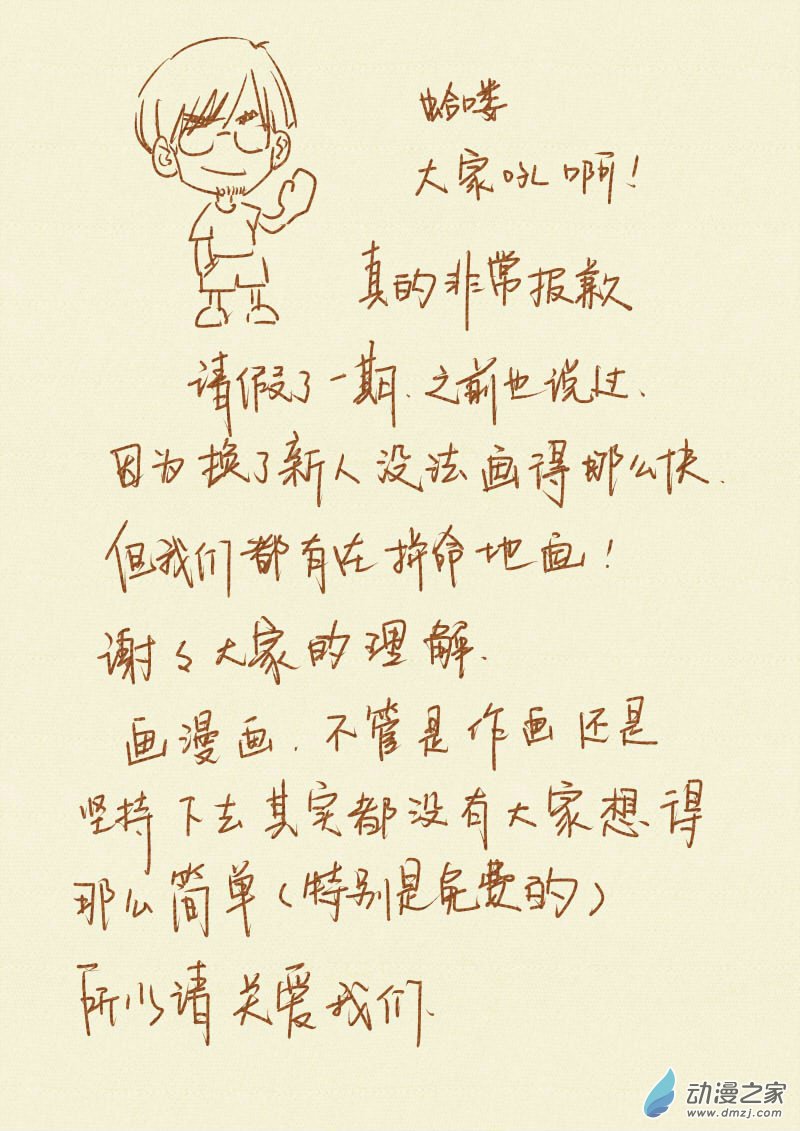 蛤喽
大家吼啊！
真的非常报歉
请假了一期.之前也说过.
因为换了新人没法画得那么快.
但我们都有在拼命地画！
谢々大家的理解.
画漫画.不管是作画还是
坚持下去其实都没有大家想得
那么简单（特别是免费的）
所以请关爱我们.
动漫之家
www.dmzj.com